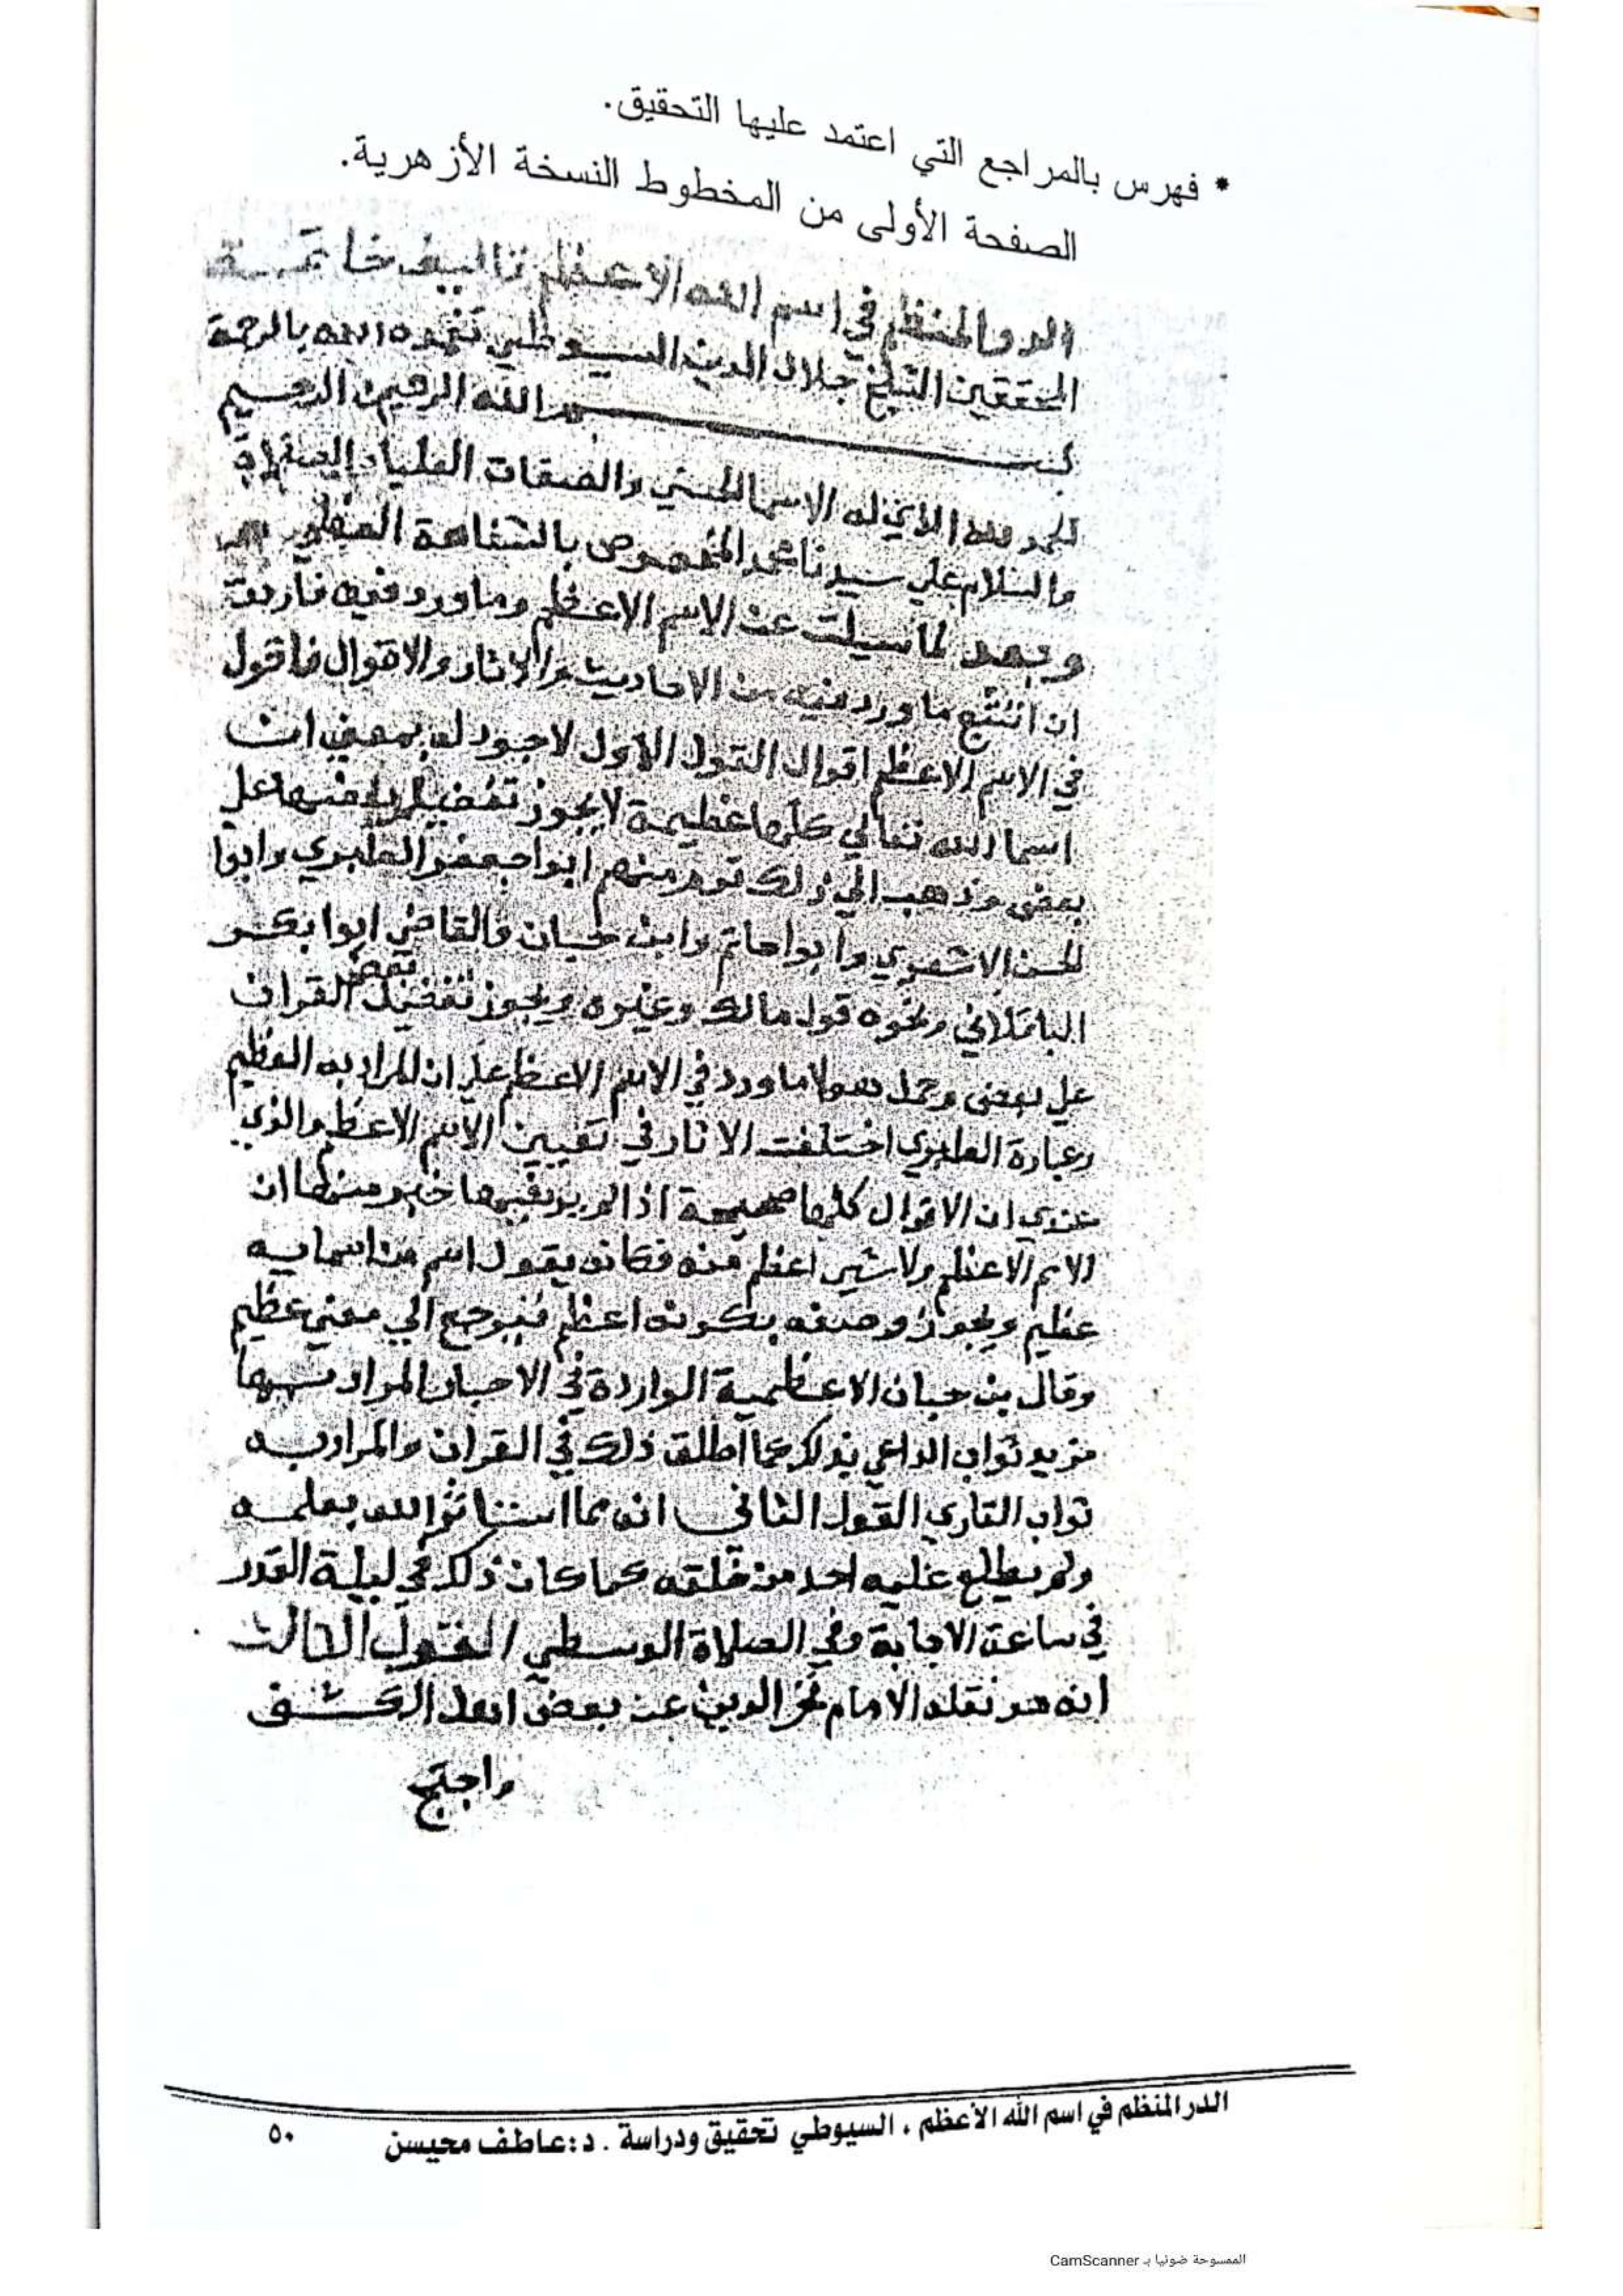 * فهرس بالمراجع التي اعتمد عليها التحقيق.
الصفحة الأولى من المخطوط النسخة الأزهرية.
الدر المنظم في اسم الله الاعظم تاليف خاتمة
المحققين الشيخ جلال الدين السيوطي تغمده الله بالرحمة
بسم الله الرحمن الرحيم
الحمد لله الذي له الاسما الحسني والصفات العليا والصلاة
والسلام علي سيدنا محمد المخصوص بالشفاعة العظمي
وبعد لما سيلت عن الاسم الاعظم وما ورد فيه فاردت
ان اتتبع ما ورد فيه من الاحاديث والاثار والاقوال فاقول
في الاسم الاعظم اقوال القول الاول لا وجود له بمعني ان
اسما الله تعالي كلها عظيمة لا يجوز تفضيل بعضها علي
بعض وذهب الي ذلك قوم منهم ابوا جعفر الطبري وابوا
الحسن الاشعري وابوا حاتم وابن حبان والقاضي ابوا بكر
الباقلاني ونحوه قول مالك وغيره ويجوز تفضيل بعض القران
علي بعض وحمل هولا ما ورد في الاسم الاعظم علي ان المراد به العظيم
وعبارة الطبري اختلفت الاثار في تعيين الاسم الاعظم والذي
عندي ان الاقوال كلها صحيحة اذا لم يرد فيها خبر منها ان
الاسم الاعظم ولا شي اعظم منه فكانه يقول اسم من اسمايه
عظيم ويجوز وصفه بكونه اعظم فيرجع الي معني عظيم
وقال بن حبان الاعظمية الواردة في الاخبار المراد بها
مزيد ثواب الداعي بذلك كما اطلق ذلك في القران والمراد به
ثواب القاري القول الثاني انه مما استاثر الله بعلمه
ولم يطلع عليه احد من خلقه كما كان ذلك في ليلة القدر
في ساعة الاجابة وفي الصلاة الوسطي القول الثالث
انه هو نقله الامام فخر الدين عن بعض اهل الكشف
واحتج
الدر المنظم في اسم الله الأعظم ، السيوطي تحقيق ودراسة . د: عاطف محيسن ٥٠
الممسوحة ضوئيا بـ CamScanner